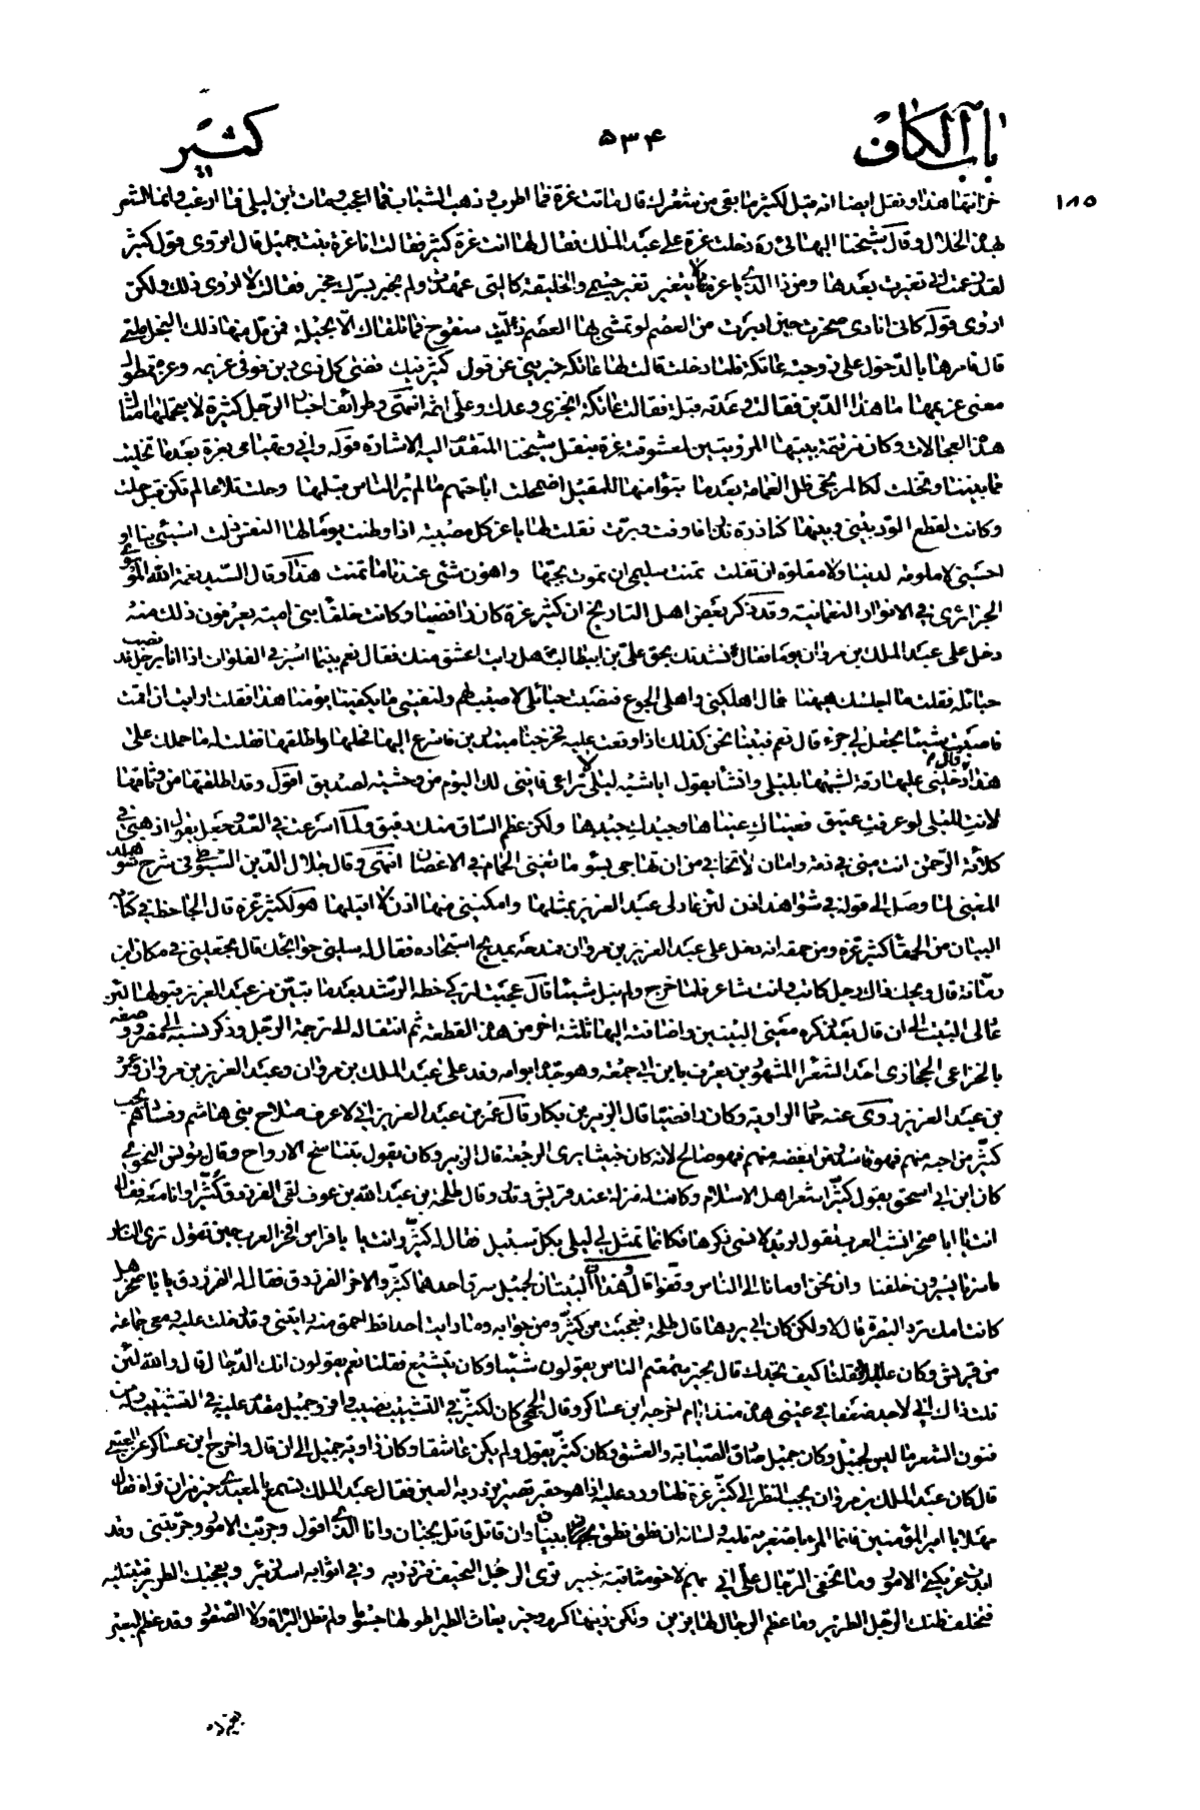 باب الكاف
۵۳۴
كثير
۱۸۵
خزانتها هذا ونقل ايضا انه قيل لكثير ما بقى من شعرك قال ماتت عزة فما اطرب وذهب الشباب فما اعجب ومات ابن ليلى فما ارغب وانما الشعر
بهذه الخلال وقال شيخنا البهائى ره دخلت عزة على عبد الملك فقال لها انت عزة كثير فقالت انا عزة بنت جميل قال اتروى قول كثير
لقد زعمت انى تغيرت بعدها ومن ذا الذى يا عز لا يتغير تغير جسمى والخليقة كالتى عهدت ولم يخبر بسرك مخبر فقالت لا اروى ذلك ولكن
اروى قوله كانى انادى صخرة حين ادبرت من الصم لو تمشى بها العصم زلت صفوح فما تلقاك الا بخيلة فمن مل منها ذلك البخل ملت
قال فامرها بالدخول على زوجته عاتكة فلما دخلت قالت لها عاتكة خبرينى عن قول كثير فيك قضى كل ذى دين فوفى غريمه وعزة ممطول
معنى غريمها ما هذا الدين فقالت وعدته قبلة فقالت عاتكة انجزى وعدك وعلى اثمه انتهى وطرائف اخبار الرجل كثيرة لا يحملها امثال
هذه العجالات وكان من تتمة بيتيها المرويتين لمعشوقته عزة بنقل شيخنا المتقدم اليه الاشارة قوله وانى وتهيامى بعزة بعدما تخليت
مما بيننا وتخلت لكالمرتجى ظل الغمامة بعدما تبوا منها للمقيل اضمحلت اباحت حمى لم يرع الناس قبلها وحلت تلاعا لم تكن قبل حلت
وكانت لقطع الود بينى وبينها كناذرة نذرا فاوفت وبرت فقلت لها يا عز كل مصيبة اذا وطنت يوما لها النفس ذلت اسيئى بنا او
احسنى لا ملومة لدينا ولا مقلوة ان تقلت تمنت سليمى ان نموت بحبها واهون شئ عندنا ما تمنت هذا وقال السيد نعمة الله الموسوى
الجزائرى فى الانوار النعمانية وقد ذكر بعض اهل التاريخ ان كثير عزة كان رافضيا وكانت خلفاء بنى امية يعرفون ذلك منه
دخل على عبد الملك بن مروان يوما فقال نشدتك بحق على بن ابيطالب هل رايت اعشق منك فقال نعم بينما اسير فى الفلوات اذا انا برجل قد نصب
حبائله فقلت ما اجلسك ههنا قال اهلكنى واهلى الجوع فنصبت حبائلى لاصيب لهم ولنفسى ما يكفينا يومنا هذا فقلت ارايت ان اقمت
فاصبت شيئا تجعل لى جزء قال نعم فبينا نحن كذلك اذ وقعت عليه فخرجنا مبتدرين فاسرع اليها فحلها واطلقها فقلت له ما حملك على
هذا قال دخلنى عليها رقة لشبهها بليلى وانشا يقول ايا شبه ليلى لا تراعى فاننى لك اليوم من وحشية لصديق اقول وقد اطلقتها من وثاقها
لانت لليلى لو عرفت عتيق فعيناك عيناها وجيدك جيدها ولكن عظم الساق منك دقيق ولما اسرعت فى العدو جعل يقول اذهبى فى
كلائة الرحمن انت منى فى ذمة وامان لا تخافى من ان تهاجى بسوء ما تغنى الحمام فى الاغصان انتهى وقال جلال الدين السيوطى فى شرح شواهد
المغنى لما وصل الى قوله فى شواهد اذن لئن عاد لى عبد العزيز بمثلها وامكننى منها اذن لا اقيلها هو لكثير عزة قال الجاحظ فى كتاب
البيان من الحمقى كثير عزة ومن حمقه انه دخل على عبد العزيز بن مروان فمدحه بمديح استجاده فقال له سلنى حوائجك قال تجعلنى فى مكان ابن
رمانة قال ويحك ذاك رجل كاتب وانت شاعر فلما خرج ولم ينل شيئا قال عجبت لتركى خطة الرشد بعدما تبين من عبد العزيز قبولها لئن
عاد لى البيت الى ان قال بعد ذكره معنى البيتين واضافته اليهما ثلثة اخر من هذه القطعة ثم انتقاله الى ترجمة الرجل وذكر نسبه الى
بالخزاعى الحجازى احد الشعراء المشهورين يعرف بابن ابى جمعة وهو جد ابو امه وفد على عبد الملك بن مروان وعبد العزيز بن مروان وعمر
بن عبد العزيز روى عنه حماد الراوية وكان رافضيا قال الزبير بن بكار وقال عمر بن عبد العزيز انى لاعرف صلاح بنى هاشم وفسادهم بحب
كثير من احبه منهم فهو فاسد ومن ابغضه منهم فهو صالح لانه كان خبيثا يرى الرجعة قال الزبير وكان يقول بتناسخ الارواح وقال يونس النحوى
كان ابن ابى اسحق يقول كثير اشعر اهل الاسلام وكانت له منزلة عند قريش وقدر وقال طلحة بن عبد الله بن عوف لقى الفرزدق كثيرا وانا معه فقال
انت يا ابا صخر انسب العرب حين تقول اريد لانسى ذكرها فكانما تمثل لى ليلى بكل سبيل فقال له كثير وانت يا با فراس افخر العرب حين تقول ترى الناس
ما سرنا يسيرون خلفنا وان نحن اومانا الى الناس وقفوا قال وهذان البيتان لجميل سرق احدهما كثير والاخر الفرزدق فقال له الفرزدق يا با صخر هل
كانت امك ترد البصرة قال لا ولكن كان ابى يردها قال طلحة فعجبت من كثير ومن جوابه وما رايت احدا قط احمق منه رايتنى وقد دخلت عليه ومعى جماعة
من قريش وكان عليلا فقلنا كيف تجدك قال بخير سمعتم الناس يقولون شيئا وكان يتشيع فقلنا نعم يقولون انك الدجال قال والله لئن
قلت ذاك انى لاجد ضعفا فى عينى هذه منذ ايام اخرجه ابن عساكر وقال الجمحى كان لكثير فى التشبيب نصيب وافر وجميل مقدم عليه فى النسيب وله من
فنون الشعر ما ليس لجميل وكان جميل صادق الصبابة والعشق وكان كثير يقول ولم يكن عاشقا وكان راوية جميل الى ان قال واخرج ابن عساكر عن العتبى
قال كان عبد الملك بن مروان يحب النظر الى كثير عزة فلما ورد عليه اذا هو حقير قصير تزدريه العين فقال عبد الملك تسمع بالمعيدى خير من ان تراه فقال
مهلا يا امير المؤمنين فانما المرء باصغريه قلبه ولسانه ان نطق نطق ببيان وان قاتل قاتل بجنان وانا الذى اقول وجربت الامور وجربتنى وقد
ابدت عريكتى الامور وما تخفى الرجال على انى بهم لاخو مثاقبة خبير ترى الرجل النحيف فتزدريه وفى اثوابه اسد يزئر ويعجبك الطرير فتبتليه
فيخلف ظنك الرجل الطرير وما عظم الرجال لها بزين ولكن زينها كرم وخير بغاث الطير اطولها جسوما ولم تطل البزاة ولا الصقور وقد عظم البعير
بغير